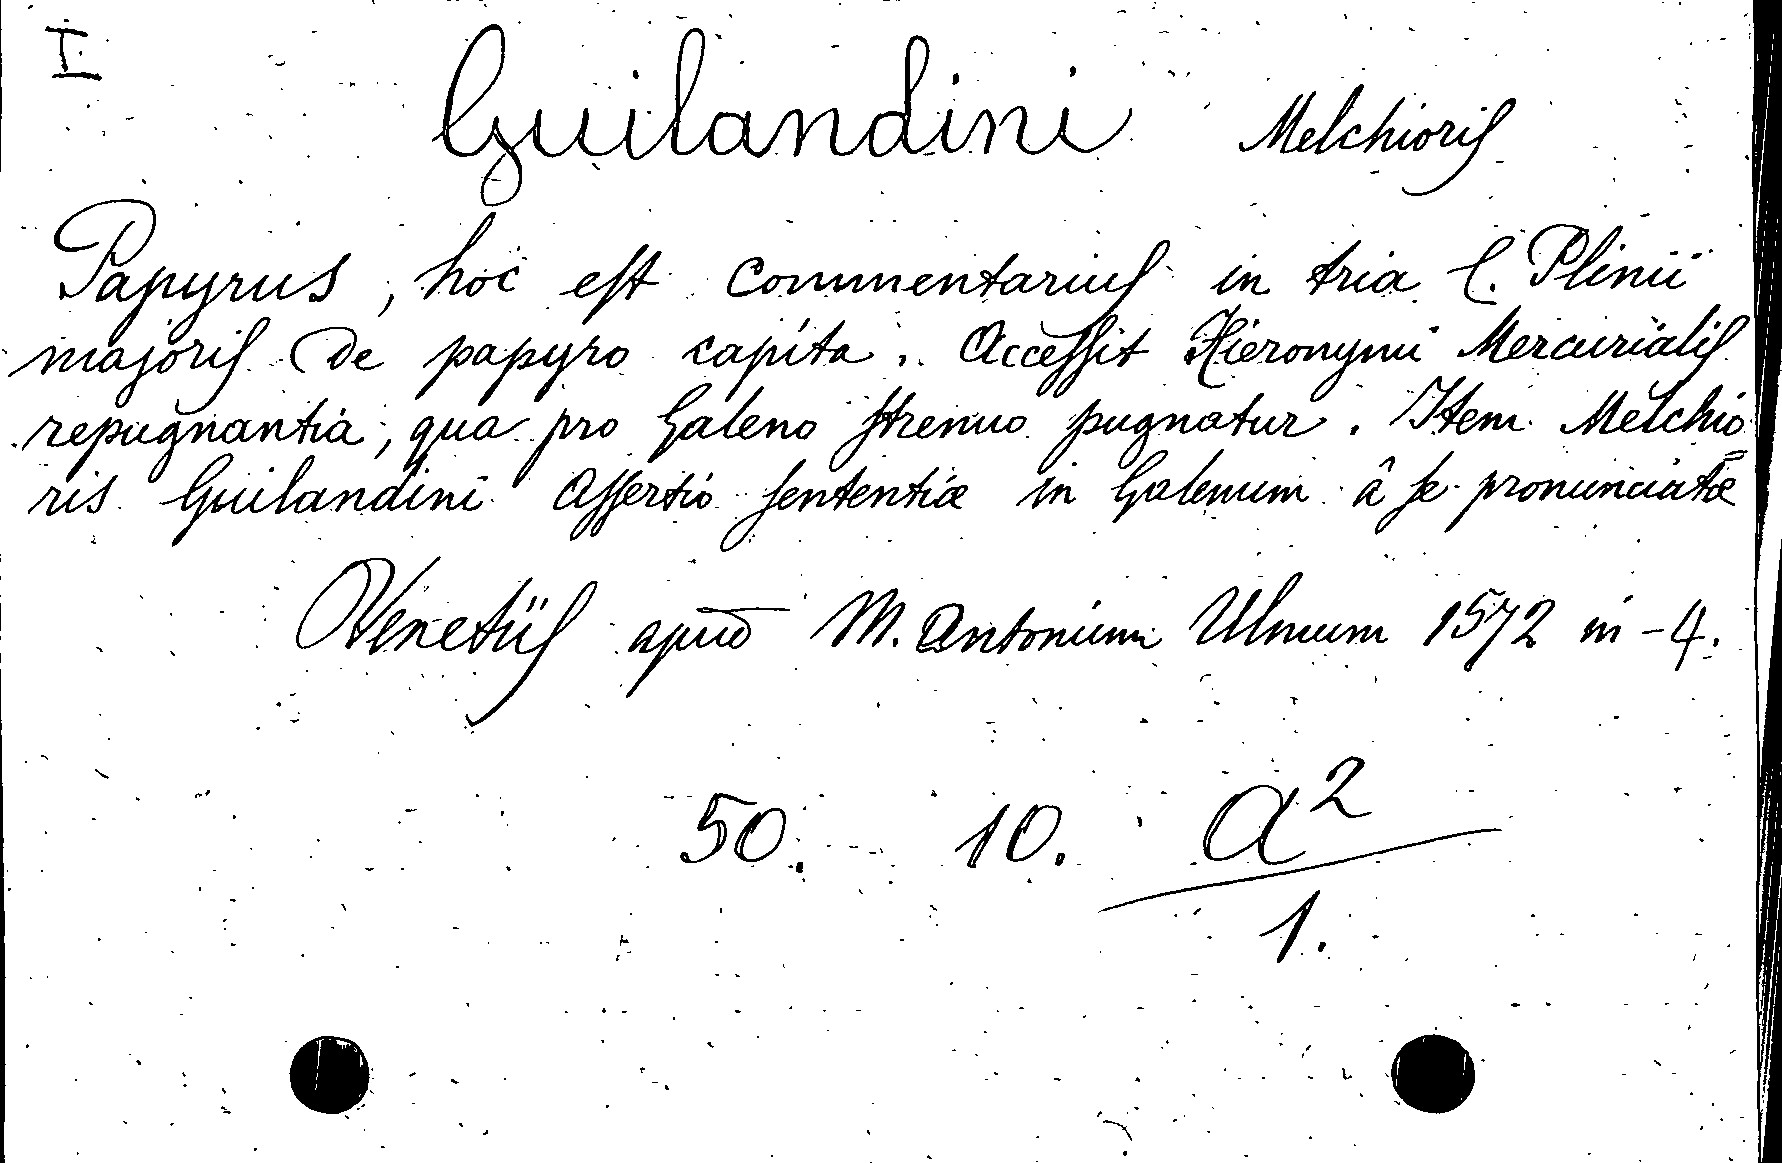 I
Guilandini Melchioris
Papyrus, hoc est commentarius in tria C. Plinii
majoris de papyro capita. Accessit Hieronymi Mercurialis
repugnantia, qua pro Galeno strenuo pugnatur. Item Melchio=
ris Guilandini assertio sententiæ in Galenum â se pronunciatæ
Venetiis apud M. Antonium Ulmum 1572 in-4.
50. 10. a²
1.